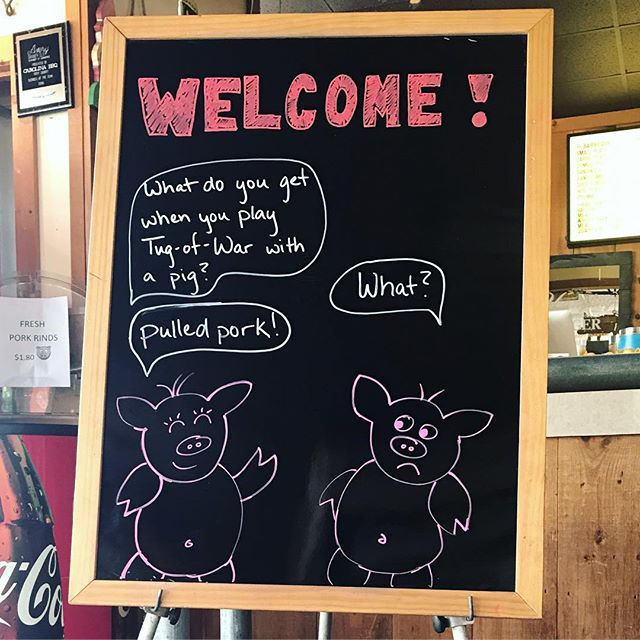 WELCOME!
What do you get
when you play
Tug-of-War with
a pig?
What?
pulled pork!
FRESH
PORK RINDS
$1.80
CAROLINA BBQ